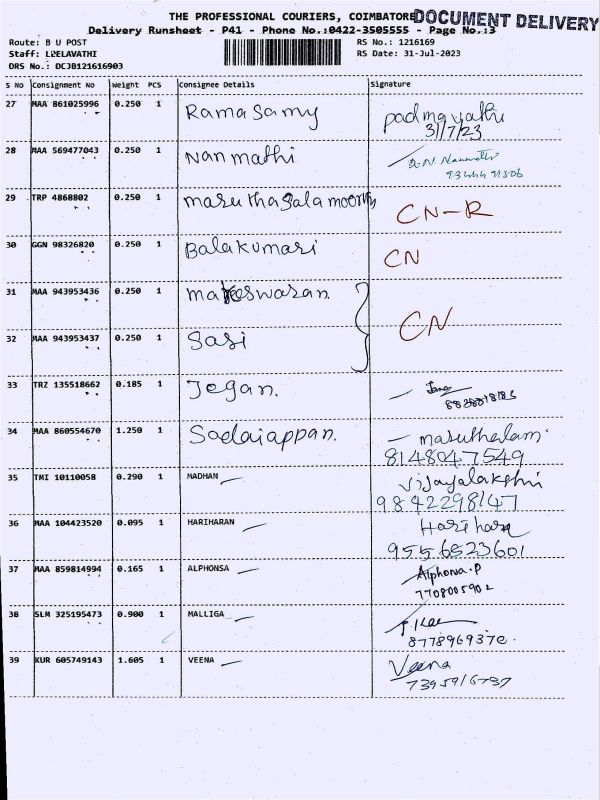 THE PROFESSIONAL COURIERS, COIMBATORE
DOCUMENT DELIVERY
Delivery Runsheet - P41 - Phone No.:0422-3505555 - Page No.:3
Route: B U POST
RS No.: 1216169
Staff: LEELAVATHI
RS Date: 31-Jul-2023
DRS No.: DCJB121616903
S No Consignment No Weight PCS Consignee Details Signature
27 MAA 861025996 0.250 1 Ramasamy padmavathi
31/7/23
28 MAA 569477043 0.250 1 Nanmathi
29 TRP 4868802 0.250 1 marutha salamoorthy CN-R
30 GGN 98326820 0.250 1 Balakumari CN
31 MAA 943953436 0.250 1 maheswaran.
32 MAA 943953437 0.250 1 Sasi CN
33 TRZ 135518662 0.185 1 Jegan.
34 MAA 860554670 1.250 1 Sadaiappan.
8148047549
35 TMI 10110058 0.290 1 MADHAN Vijayalakshi
9842298147
36 MAA 104423520 0.095 1 HARIHARAN Hari hara
9556523601
37 MAA 859814994 0.165 1 ALPHONSA Alphonsa.P
7708005902
38 SLM 325195473 0.900 1 MALLIGA
39 KUR 605749143 1.605 1 VEENA Veena